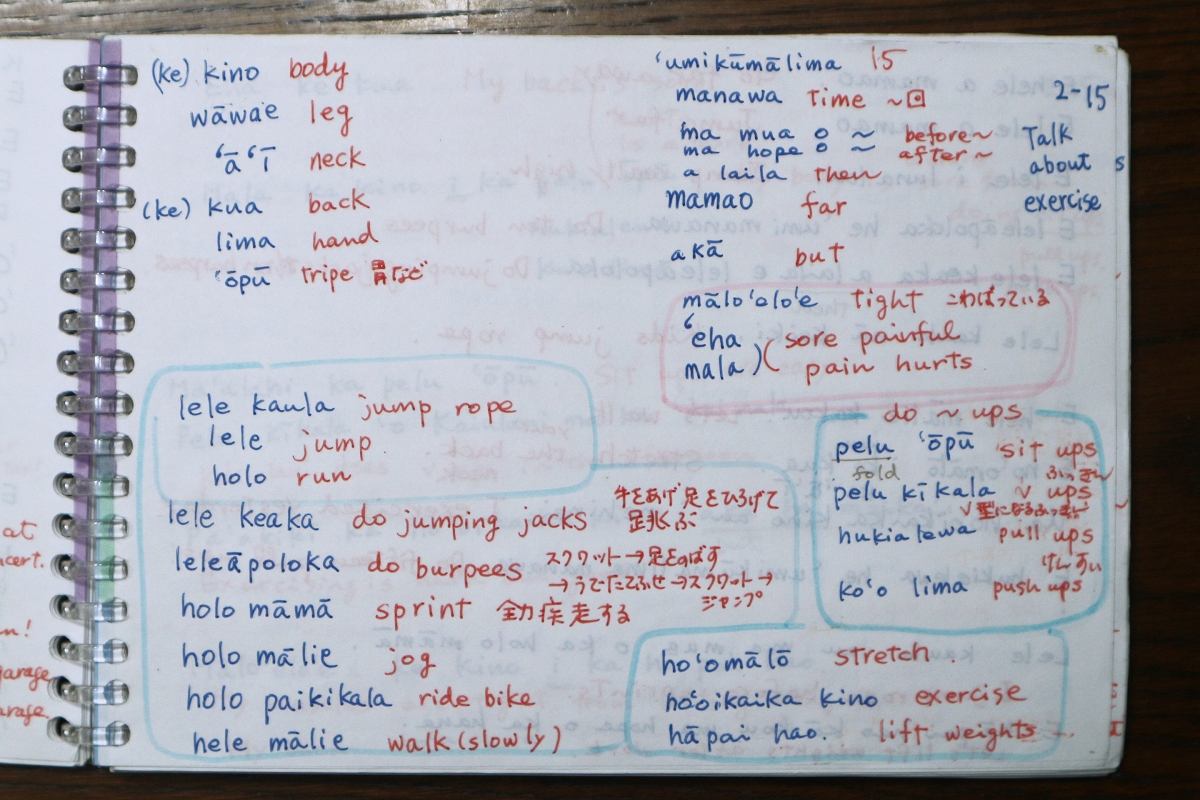 (ke) kino body
wāwae leg
ʻāʻī neck
(ke) kua back
lima hand
ʻōpū tripe 胃など
lele kaula jump rope
lele jump
holo run
lele keaka do jumping jacks 手をあげ足をひろげて
跳ぶ
leleāpoloka do burpees スクワット→足をのばす
→うでたてふせ→スクワット→
ジャンプ
holo māmā sprint 全力疾走する
holo mālie jog
holo paikikala ride bike
hele mālie walk (slowly)
ʻumikūmālima 15
manawa Time ~回
ma mua o ~ before~
ma hope o ~ after~
a laila then
mamao far
akā but
2-15
Talk
about
exercise
māloʻoloʻe tight こわばっている
ʻeha
mala
sore painful
pain hurts
do ~ ups
pelu ʻōpū sit ups
fold ふっきん
pelu kīkala v ups
hukialewa pull ups
けんすい
koʻo lima push ups
hoʻomālō stretch
hoʻoikaika kino exercise
hāpai hao. lift weights
at
n!
garage